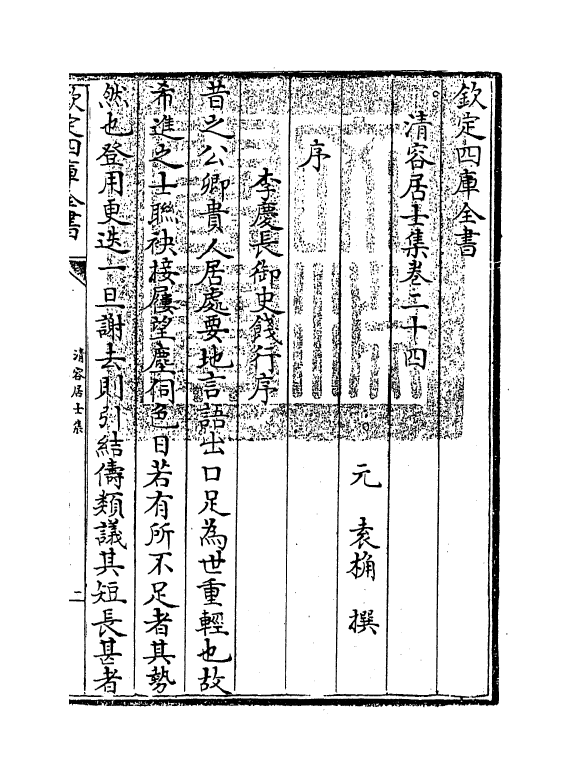 欽定四庫全書
清容居士集卷二十四
元 袁桷 撰
序
李慶長御史餞行序
昔之公卿貴人居處要地言語出口足為世重輕也故
希進之士聯袂接屨望塵伺色日若有所不足者其勢
然也登用更迭一旦謝去則引結儔類議其短長甚者
欽定四庫全書
清容居士集